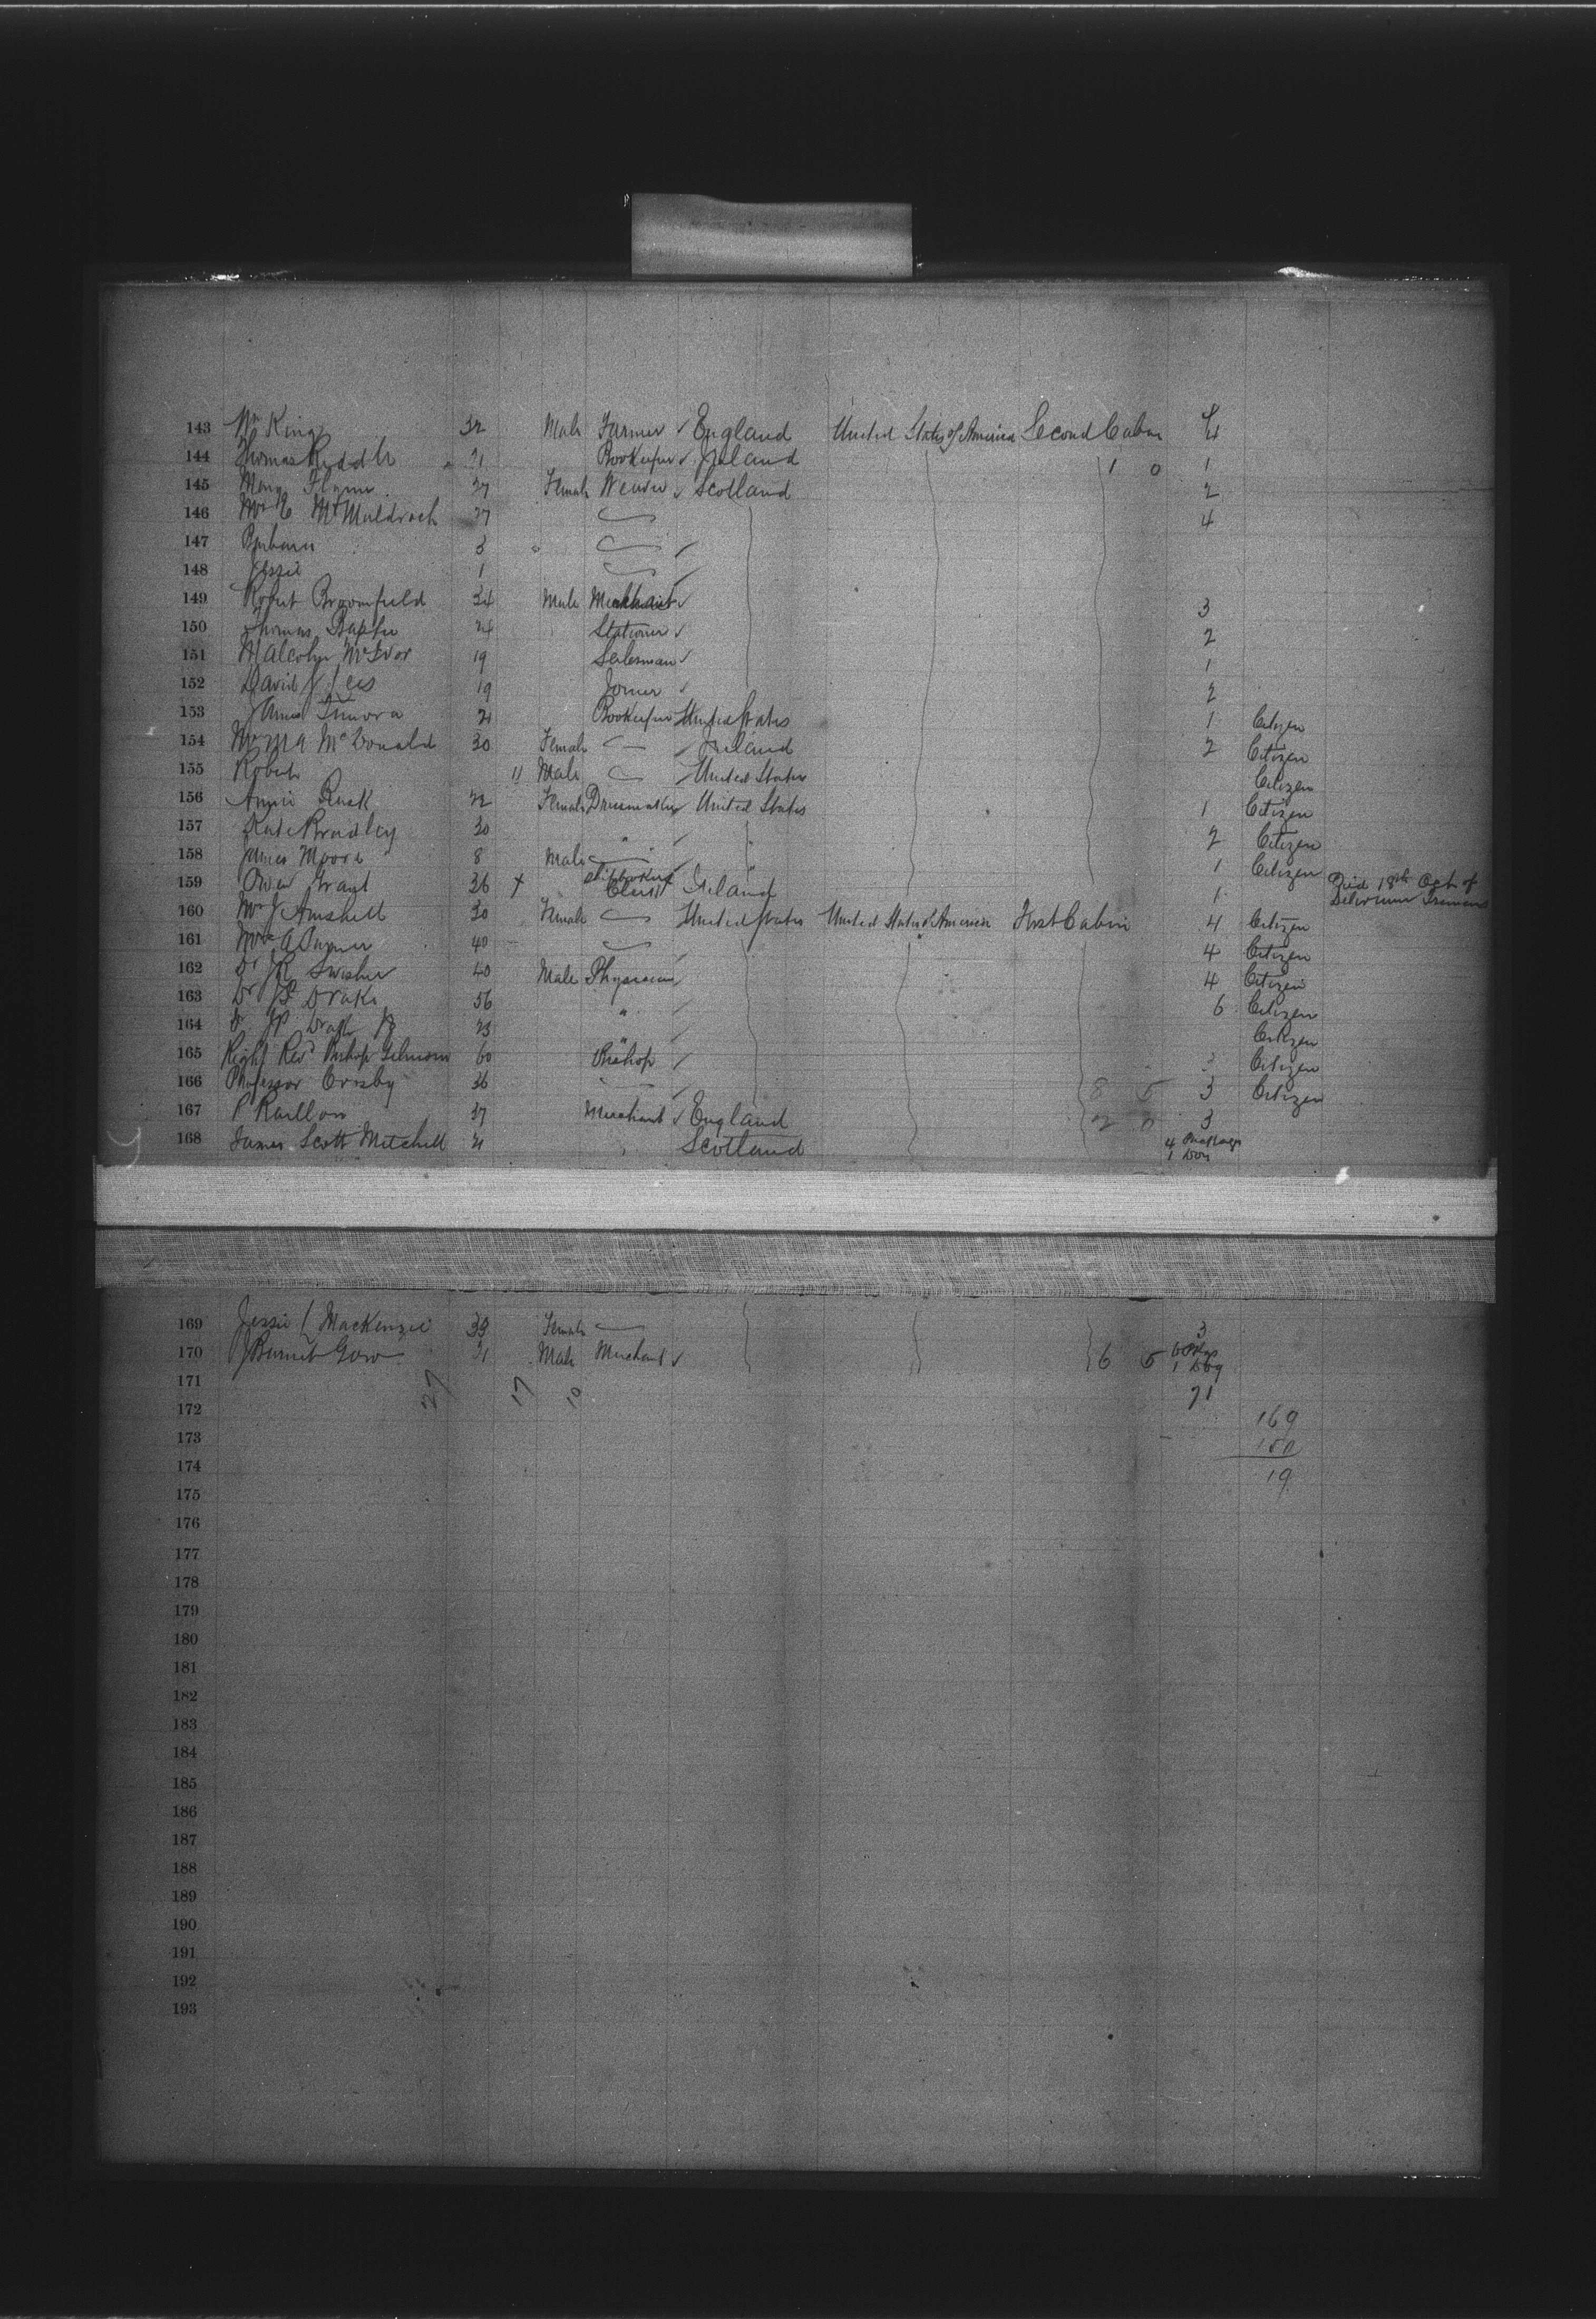 143 Wm King 32 Male Farmer ✓ England United States of America Second Cabin 4
144 Thomas Riddle 21 Bookeeper ✓ Ireland 1 0 1
145 Mary Flynn 27 Female Weaver ✓ Scotland 2
146 Mrs E McMuldroch 27 4
147 Barbara 3 ✓
148 Jessie 1 ✓
149 Robert Broomfield 34 Male Merchant ✓ 3
150 Thomas 24 Stationer ✓ 2
151 Malcolm McIvor 19 Salesman ✓ 1
152 David Lees 19 Joiner ✓ 2
153 James 21 Bookeeper United States 1 Citizen
154 Mrs McDonald 30 Female ✓ Ireland 2 Citizen
155 Robert 11 Male ✓ United States Citizen
156 Annie Rusk 22 Female Dressmaker United States 1 Citizen
157 Kate Bradley 30 " ✓ " 2 Citizen
158 James Moore 8 Male ✓ " 1 Citizen
159 Owen Grant 36 + Shipbroking Clerk Ireland 1 Died 18th Oct of Delirium Tremens
160 Mrs J Amshell 30 Female United States United States of America First Cabin 4 Citizen
161 Mrs A 40 ✓ " 4 Citizen
162 Dr JR Swisher 40 Male Physician ✓ 4 Citizen
163 Dr JP Drake 56 " ✓ 6 Citizen
164 JP Jr 23 ✓ Citizen
165 Right Revd Bishop Gilmour 60 Bishop ✓ 3 Citizen
166 Professor Crosby 36 ✓ 8 5 3 Citizen
167 P Raillon 37 Merchant ✓ England 2 0 3
168 James Scott Mitchell 21 Scotland 4 Packages 1 Box
169 Jessie MacKenzie 33 Female 3
170 J Burnet Gow 31 Male Merchant ✓ 6 5 6 Pkgs 1 Dog
171 27 17 10 71
172 169
173 150
174 19
175
176
177
178
179
180
181
182
183
184
185
186
187
188
189
190
191
192
193